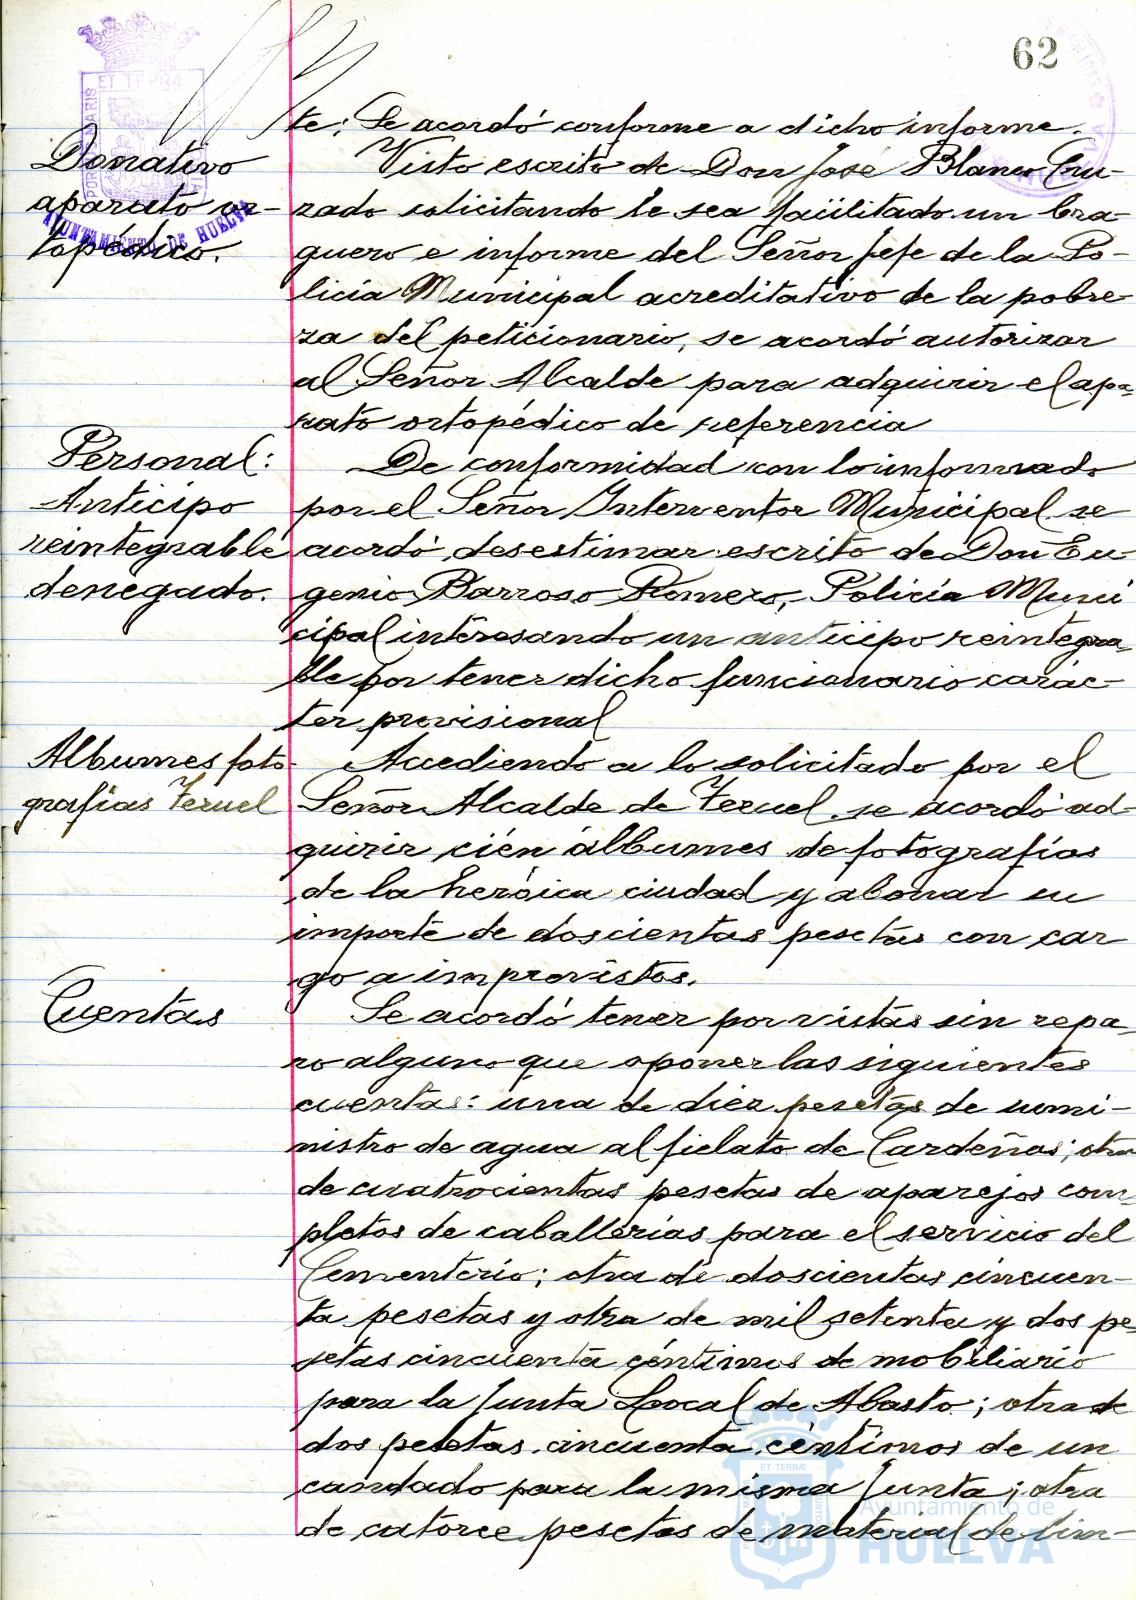 62
te; Se acordó conforme a dicho informe.
Donativo
aparato or-
topédico.
Visto escrito de Don José Blanco Cru-
zado solicitando le sea facilitado un bra-
guero e informe del Señor Jefe de la Po-
licia Municipal acreditativo de la pobre-
za del peticionario, se acordó autorizar
al Señor Alcalde para adquirir el apa-
rato ortopédico de referencia
Personal:
Anticipo
reintegrable
denegado.
De conformidad con lo informado
por el Señor Interventor Municipal se
acordó desestimar escrito de Don Eu-
genio Barroso Romero, Policia Muni
cipal interesando un anticipo reintegra-
ble por tener dicho funcionario carác-
ter provisional
Albumes foto
grafias Teruel
Accediendo a lo solicitado por el
Señor Alcalde de Teruel se acordó ad-
quirir cién álbumes de fotografias
de la heróica ciudad y abonar su
importe de doscientas pesetas con car
go a imprevistos.
Cuentas
Se acordó tener por vistas sin repa-
ro alguno que oponer las siguientes
cuentas: una de diez pesetas de sumi-
nistro de agua al fielato de Cardeñas; otra
de cuatrocientas pesetas de aparejos com-
pletos de caballerias para el servicio del
Cementerio; otra de doscientas cincuen-
ta pesetas y otra de mil setenta y dos pe-
setas cincuenta céntimos de mobiliario
para la Junta Local de Abasto; otra de
dos pesetas cincuenta céntimos de un
candado para la misma Junta; otra
de catorce pesetas de material de lim-
AYUNTAMIENTO DE HUELVA
Ayuntamiento de
HUELVA